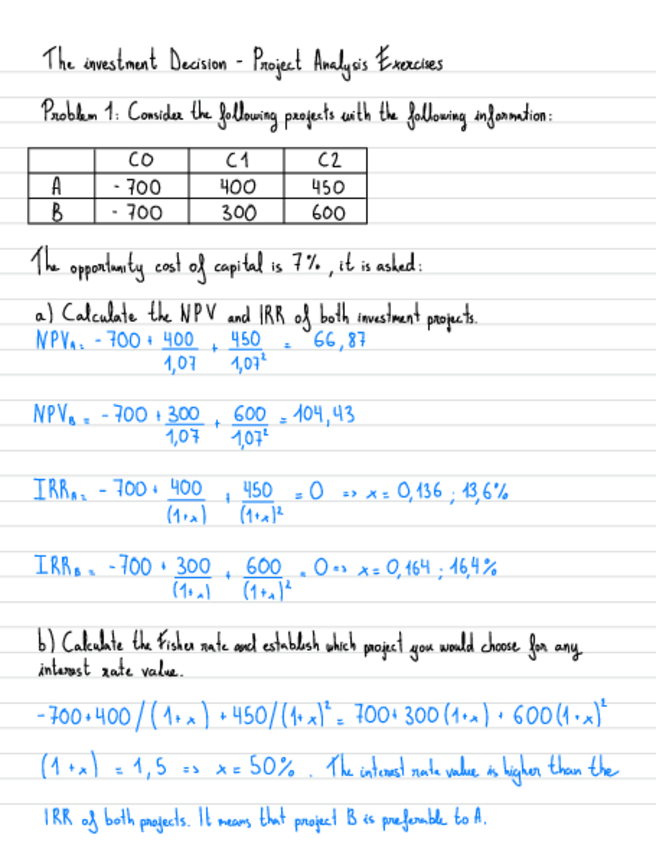 The investment Decision - Project Analysis Exercises
Problem 1: Consider the following projects with the following information:
C0 C1 C2
A -700 400 450
B -700 300 600
The opportunity cost of capital is 7%, it is asked:
a) Calculate the NPV and IRR of both investment projects.
NPV_A = -700 + 400/1,07 + 450/1,07² = 66,87
NPV_B = -700 + 300/1,07 + 600/1,07² = 104,43
IRR_A = -700 + 400/(1+x) + 450/(1+x)² = 0 => x = 0,136 ; 13,6%
IRR_B = -700 + 300/(1+x) + 600/(1+x)² = 0 => x = 0,164 ; 16,4%
b) Calculate the Fisher rate and establish which project you would choose for any
interest rate value.
-700+400/(1+x) + 450/(1+x)² = 700+300(1+x) + 600(1+x)²
(1+x) = 1,5 => x = 50%. The interest rate value is higher than the
IRR of both projects. It means that project B is preferable to A.